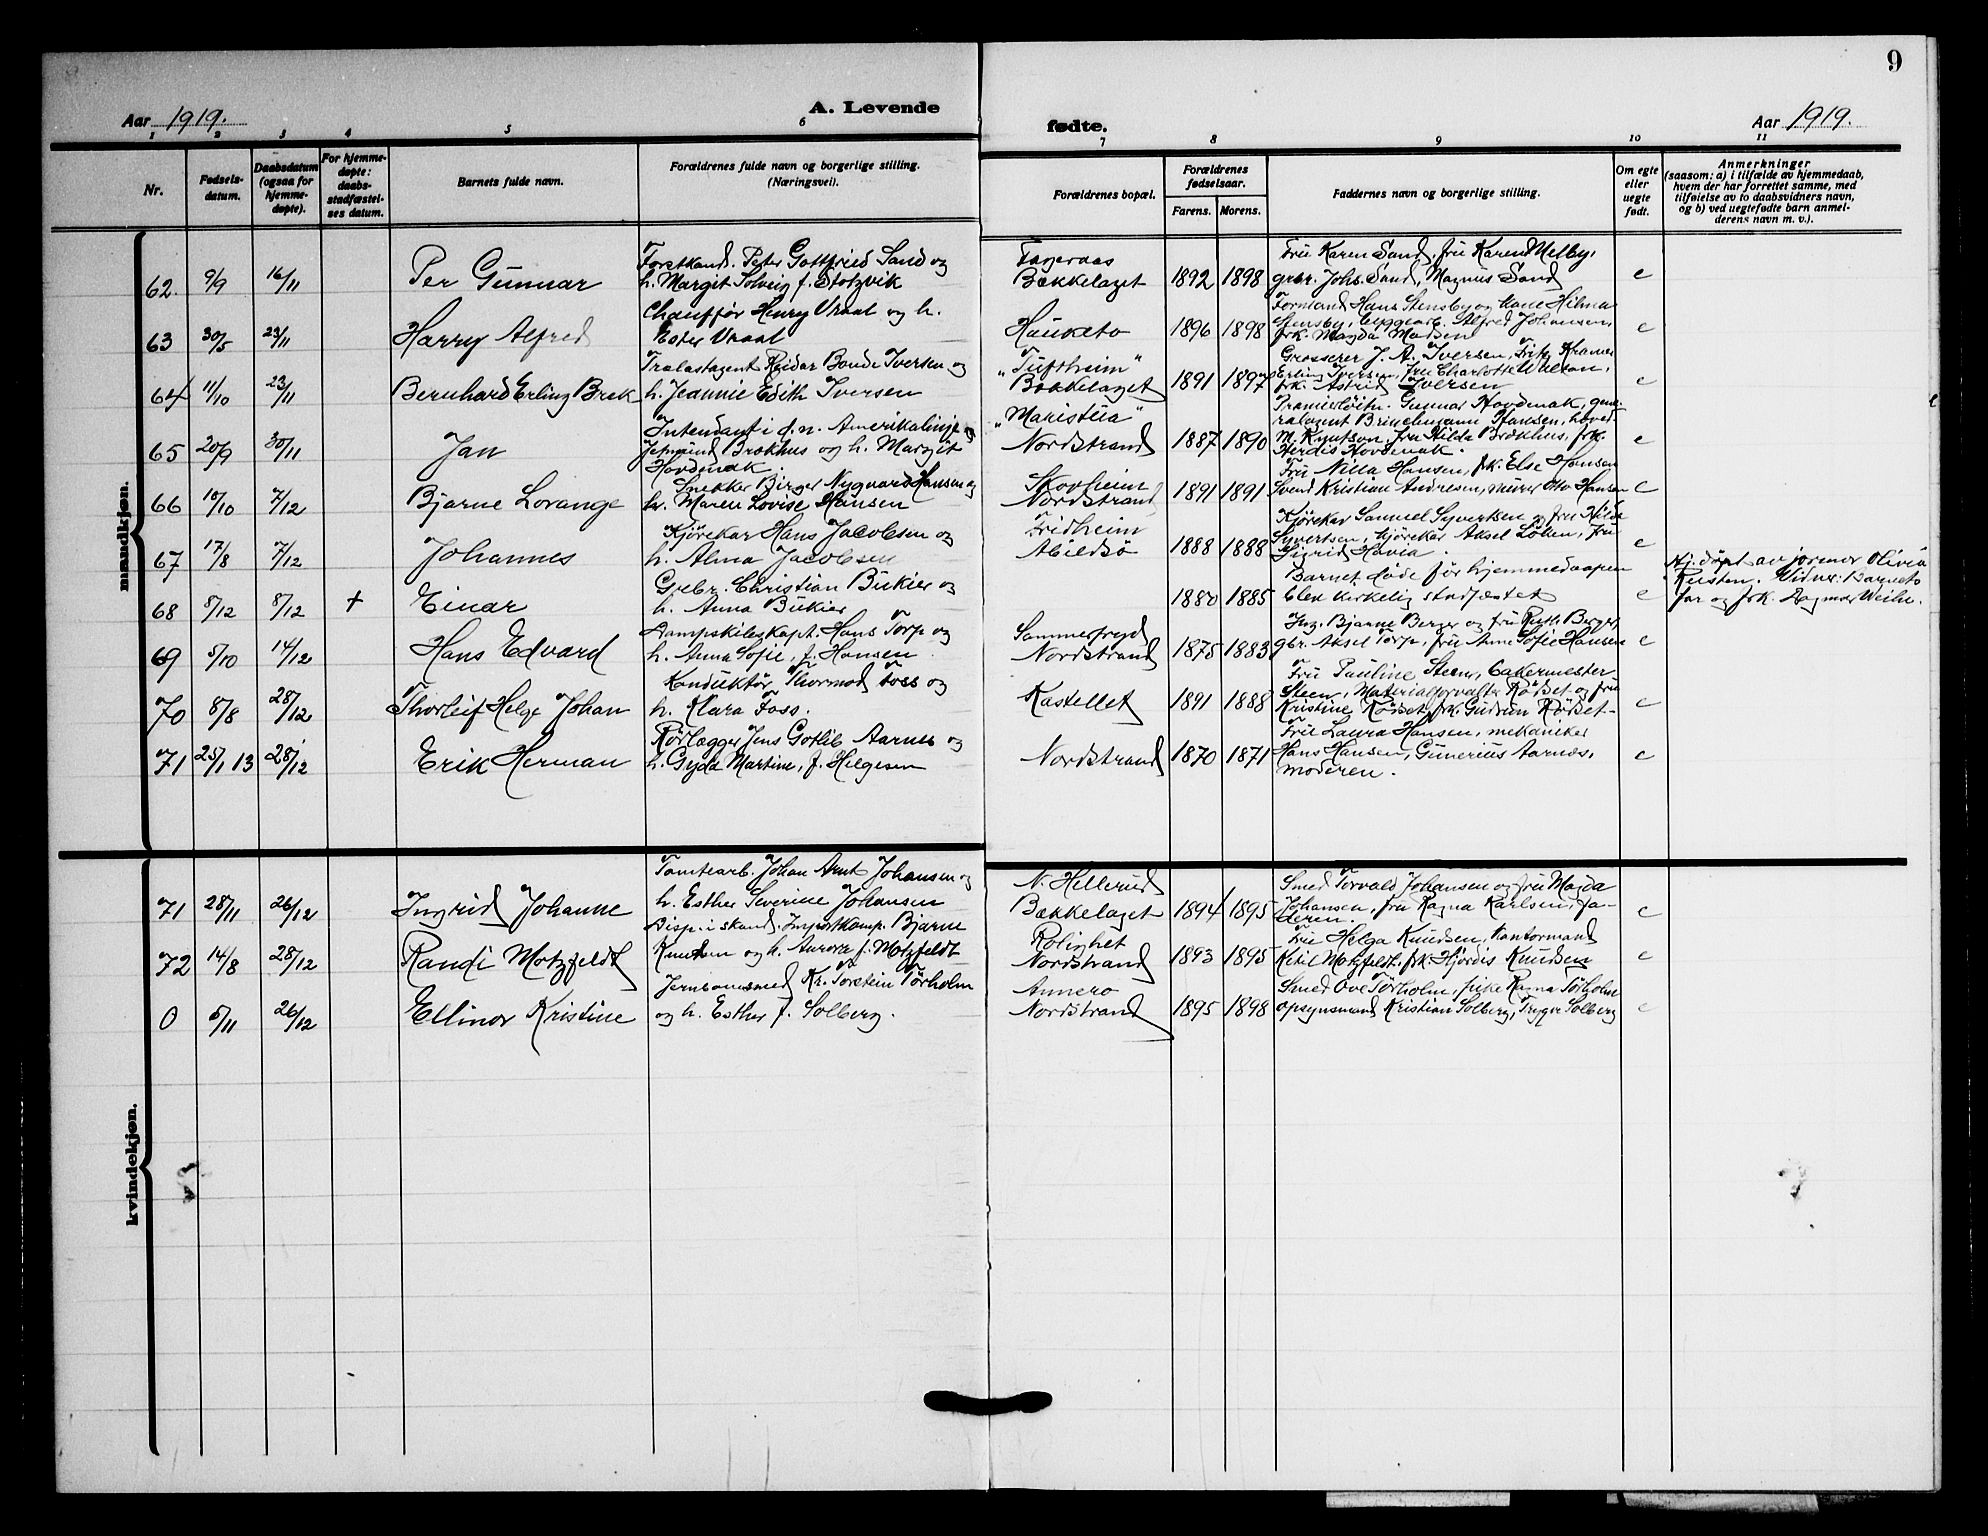 9
Aar 1919. A. Levende fødte. Aar 1919.
1 2 3 4 5 6 7 8 9 10 11
Nr. Fødsels-datum. Daabsdatum (ogsaa for hjemme-døpte). For hjemme-døpte: daabs-stadfæstel-ses datum. Barnets fulde navn. Forældrenes fulde navn og borgerlige stilling. (Næringsvei). Forældrenes bopæl. Forældrenes fødselsaar. Farens. Morens. Faddernes navn og borgerlige stilling. Om egte eller uegte født. Anmerkninger (saasom: a) i tilfælde av hjemmedaab, hvem der har forrettet samme, med tilføielse av to daabsvidners navn, og b) ved uegtefødte barn anmel-derens navn m. v.).
mandkjøn.
Forstkand. Peter Gottfried Sand og Fagernaas Fru Karen Sand, fru Karen Melby,
62. 9/9 16/11 Per Gunnar h. Margit Solveig f. Stolzvik Bækkelaget 1892 1898 grbr. Johs. Sand, Magnus Sand e
Chauffør Henry Vraal og h. Formand Hans Stensby og Hilma
63 30/5 23/11 Harry Alfred Ester Vraal Hauketo 1896 1898 Stensby, Alfred Johansen, e
frk. Magda Madsen
Tralastagent Reidar Bonde Iversen og "Tuftheim" Grosserer J. A. Iversen, Fritz Kramer
64 11/10 23/11 Bernhard Erling Brek h. Jeannie Edith Iversen Bækkelaget 1891 1897 Erling Iversen, fru Charlotte e
frk. Astrid Iversen
Intendant i d. n. Amerikalinje "Maristua" Premierløitn. Gunnar Hovdenak, gene-
65 20/9 30/11 Jan Brækhus og h. Margit Nordstrand 1887 1890 ralagent Hansen, e
Hovdenak. M. Knutson, fru Hilda Brækhus, frk. Herdis Hovdenak.
Snekker Birger Nygaard Hansen og Skovheim Fru Nilla Hansen, frk. Else Hansen
66 10/10 7/12 Bjarne Lorange h. Maren Lovise Hansen Nordstrand 1891 1891 Svend Kristian Andresen, murer Otto Hansen e
Kjørekar Hans Jacobsen og Fridheim Kjørekar Samuel Syvertsen og fru Hilda
67 17/8 7/12 Johannes h. Alma Jacobsen Abildsø 1888 1888 Syvertsen, kjørekar Aksel Løken, fru e
Sigrid Havia.
Grbr. Christian Bukier og Barnet døde før hjemmedaapen Hj. døpt av jormor Olivia
68 8/12 8/12 + Einar h. Anna Bukier 1880 1885 blev kirkelig stadfæstet e Rusten. Vidner: Barnets
far og frk. Dagmar Weihe.
Dampskibskapt. Hans Torp og Sommerfryd Ing. Bjarne Berger og fru Ruth Berger,
69 5/10 14/12 Hans Edvard h. Anna Sofie, f. Hansen Nordstrand 1875 1883 gbr. Aksel Torp, fru Anne Sofie Hansen e
Konduktør Thormod Foss og Fru Pauline Steen, bakermester
70 8/8 28/12 Thorleif Helge Johan h. Klara Foss. Kastellet 1891 1888 Steen, Materialforvalter Rødset og fru e
Kristine Rødset, frk. Gudrun Rødset
Rørlægger Jens Gotlib Aarnes og Fru Laura Hansen, mekaniker
71 25/1 13 28/12 Erik Herman h. Gyda Martine, f. Helgesen Nordstrand 1870 1871 Hans Hansen, Gunerius Aarnæs, e
moderen.
kvindekjøn.
Tomtearb. Johan Arnt Johansen og N. Hellerud Smed Torvald Johansen og fru Magda
71 28/11 26/12 Ingrid Johanne h. Esther Severine Johansen Bækkelaget 1894 1895 Johansen, fru Ragna Karlsen, fa- e
deren.
Disp. i skand. Importkomp. Bjarne Rolighet Fru Helga Knudsen, Kontormand
72 14/8 28/12 Randi Motzfeldt Knudsen og h. Aurora f. Motzfeldt Nordstrand 1893 1895 Ketil Motzfeldt, frk. Hjørdis Knudsen e
Jernbanesmed Kr. Torstein Tørholm Annero Smed Ove Tørholm, frøken Ragna Tørholm
0 5/11 26/12 Ellinor Kristine og h. Esther f. Solberg. Nordstrand 1895 1898 opsynsmand Kristian Solberg, Trygve Solberg e